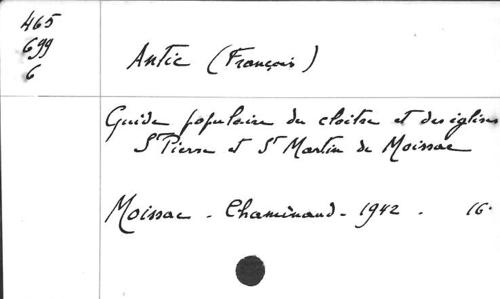 465
699
6
Antic (François)
Guide populaire du cloitre et des églises
St Pierre et St Martin de Moissac
Moissac - Chaminaud - 1942 . 16°